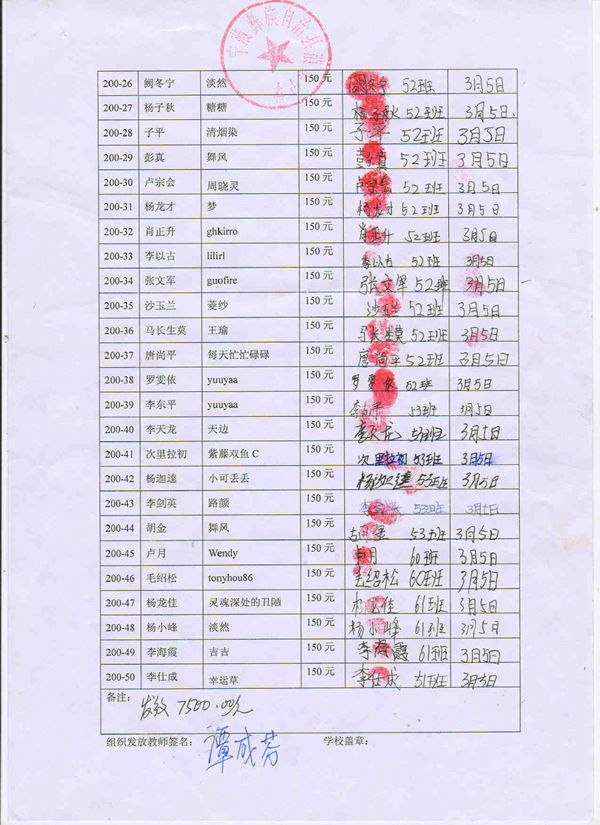 宁蒗彝族自治县
200-26 阙冬宁 淡然 150 元 52班 3月5日
200-27 杨子秋 糖糖 150 元 杨子秋 52班 3月5日.
200-28 子平 清烟染 150 元 子平 52班 3月5日
200-29 彭真 舞风 150 元 彭真 52班 3月5日
200-30 卢宗会 周晓灵 150 元 卢宗会 52班 3月5日
200-31 杨龙才 梦 150 元 杨龙才 52班 3月5日
200-32 肖正升 ghkirro 150 元 肖正升 52班 3月5日
200-33 李以古 lilirl 150 元 李以古 52班 3月5日
200-34 张文军 guofire 150 元 张文军 52班 3月5日
200-35 沙玉兰 菱纱 150 元 沙玉兰 52班 3月5日
200-36 马长生莫 王瑜 150 元 马长生莫 52班 3月5日
200-37 唐尚平 每天忙忙碌碌 150 元 唐尚平 52班 3月5日
200-38 罗雯依 yuuyaa 150 元 罗雯依 52班 3月5日
200-39 李东平 yuuyaa 150 元 53班 3月5日
200-40 李天龙 天边 150 元 李天龙 53班 3月5日
200-41 次里拉初 紫藤双鱼 C 150 元 次里拉初 53班 3月5日
200-42 杨迦速 小可丢丢 150 元 杨迦速 53班 3月5日
200-43 李剑英 路颜 150 元 53班
200-44 胡金 舞风 150 元 胡金 53班 3月5日
200-45 卢月 Wendy 150 元 卢月 60班 3月5日
200-46 毛绍松 tonyhou86 150 元 毛绍松 60班 3月5日
200-47 杨龙佳 灵魂深处的丑陋 150 元 杨龙佳 61班 3月5日
200-48 杨小峰 淡然 150 元 杨小峰 61班 3月5日
200-49 李海霞 吉吉 150 元 李海霞 61班 3月5日
200-50 李仕成 幸运草 150 元 李仕成 3月5日
备注:
发放 7500.00元
组织发放教师签名: 谭成芳 学校盖章: